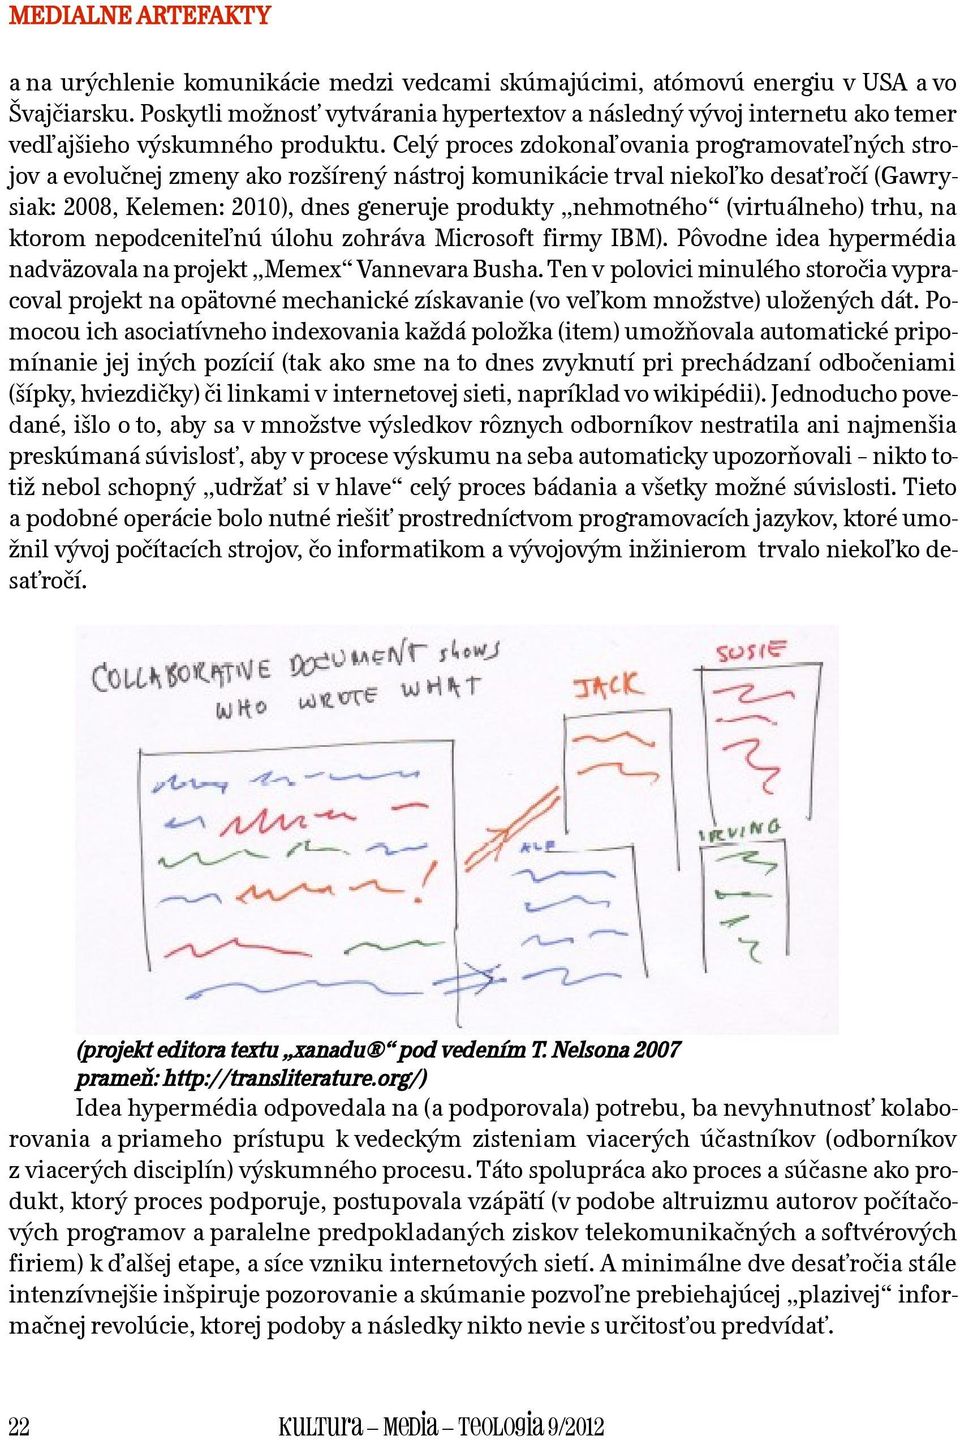 MEDIALNE ARTEFAKTY
a na urýchlenie komunikácie medzi vedcami skúmajúcimi, atómovú energiu v USA a vo
Švajčiarsku. Poskytli možnosť vytvárania hypertextov a následný vývoj internetu ako temer
vedľajšieho výskumného produktu. Celý proces zdokonaľovania programovateľných stro-
jov a evolučnej zmeny ako rozšírený nástroj komunikácie trval niekoľko desaťročí (Gawry-
siak: 2008, Kelemen: 2010), dnes generuje produkty „nehmotného“ (virtuálneho) trhu, na
ktorom nepodceniteľnú úlohu zohráva Microsoft firmy IBM). Pôvodne idea hypermédia
nadväzovala na projekt „Memex“ Vannevara Busha. Ten v polovici minulého storočia vypra-
coval projekt na opätovné mechanické získavanie (vo veľkom množstve) uložených dát. Po-
mocou ich asociatívneho indexovania každá položka (item) umožňovala automatické pripo-
mínanie jej iných pozícií (tak ako sme na to dnes zvyknutí pri prechádzaní odbočeniami
(šípky, hviezdičky) či linkami v internetovej sieti, napríklad vo wikipédii). Jednoducho pove-
dané, išlo o to, aby sa v množstve výsledkov rôznych odborníkov nestratila ani najmenšia
preskúmaná súvislosť, aby v procese výskumu na seba automaticky upozorňovali – nikto to-
tiž nebol schopný „udržať si v hlave“ celý proces bádania a všetky možné súvislosti. Tieto
a podobné operácie bolo nutné riešiť prostredníctvom programovacích jazykov, ktoré umo-
žnil vývoj počítacích strojov, čo informatikom a vývojovým inžinierom trvalo niekoľko de-
saťročí.
COLLABORATIVE DOCUMENT shows
WHO WROTE WHAT
JACK
SUSIE
ALF
IRVING
(projekt editora textu „xanadu®“ pod vedením T. Nelsona 2007
prameň: http://transliterature.org/)
Idea hypermédia odpovedala na (a podporovala) potrebu, ba nevyhnutnosť kolabo-
rovania a priameho prístupu k vedeckým zisteniam viacerých účastníkov (odborníkov
z viacerých disciplín) výskumného procesu. Táto spolupráca ako proces a súčasne ako pro-
dukt, ktorý proces podporuje, postupovala vzápätí (v podobe altruizmu autorov počítačo-
vých programov a paralelne predpokladaných ziskov telekomunikačných a softvérových
firiem) k ďalšej etape, a síce vzniku internetových sietí. A minimálne dve desaťročia stále
intenzívnejšie inšpiruje pozorovanie a skúmanie pozvoľne prebiehajúcej „plazivej“ infor-
mačnej revolúcie, ktorej podoby a následky nikto nevie s určitosťou predvídať.
22 Kultura – Media – Teologia 9/2012